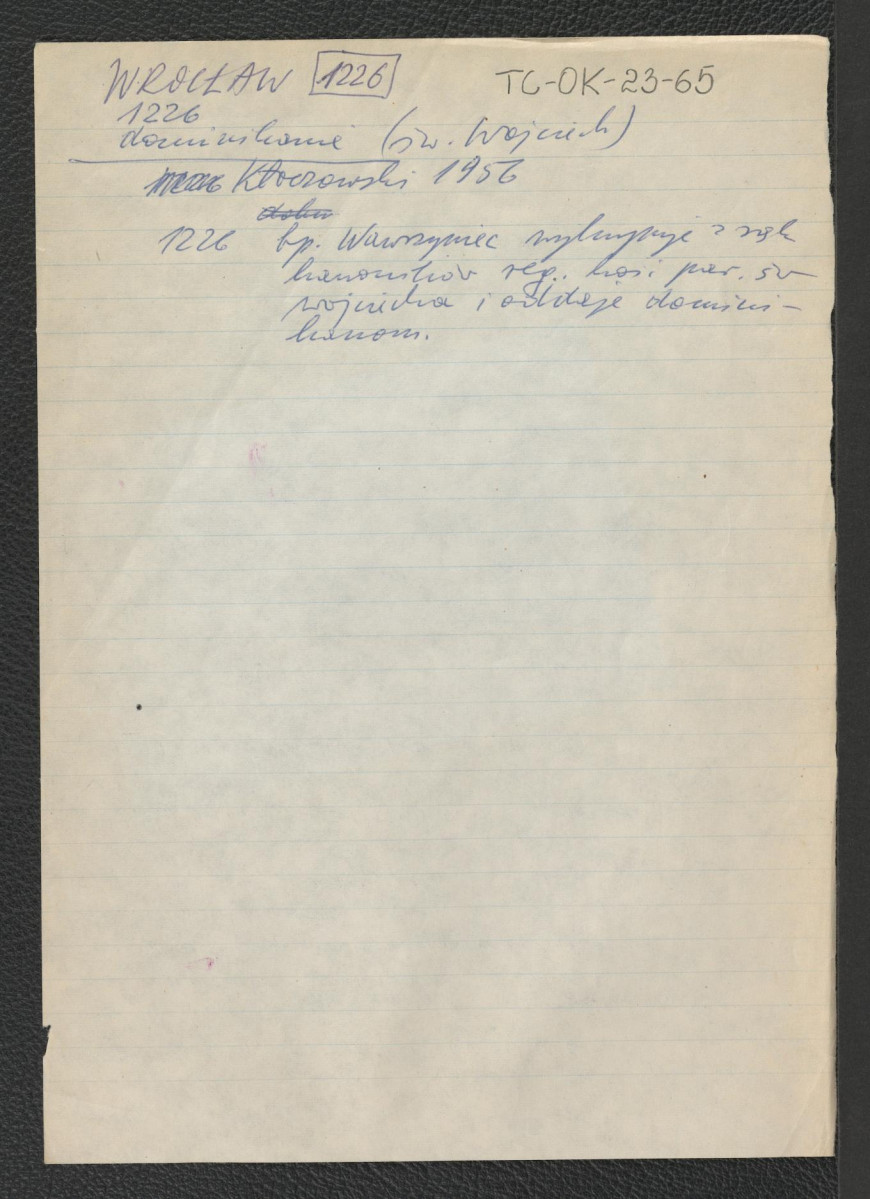 WROCŁAW 1226 TC-OK-23-65
1226
dominikanie (św. Wojciech)
Kłoczowski 1956
1226 bp. Wawrzyniec wykupuje z rąk
kanoników reg. kość. par. św
Wojciecha i oddaje domini-
kanom.